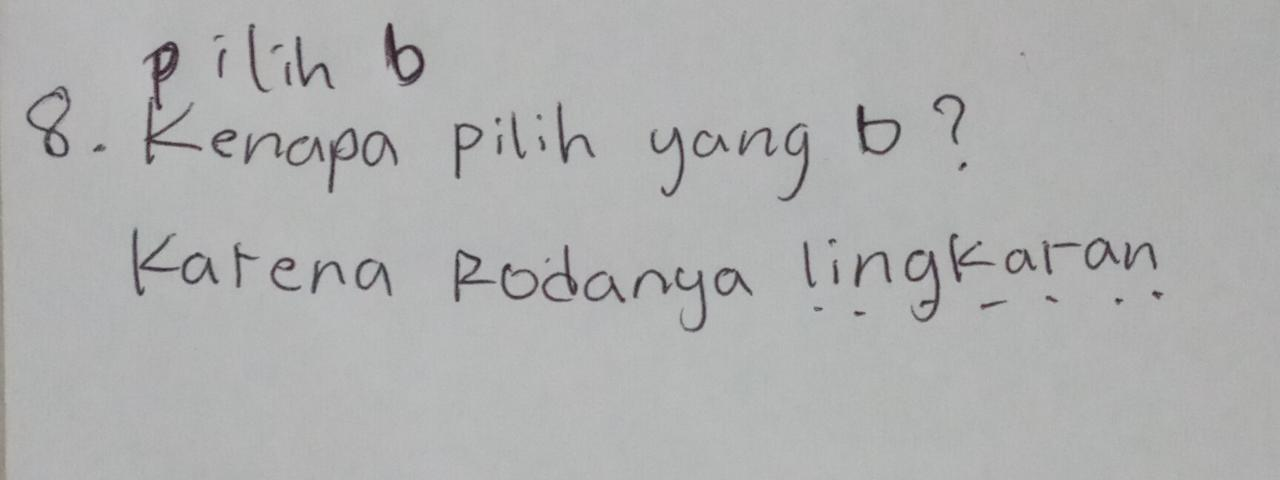 pilih b
8. Kenapa pilih yang b?
Karena Rodanya lingkaran